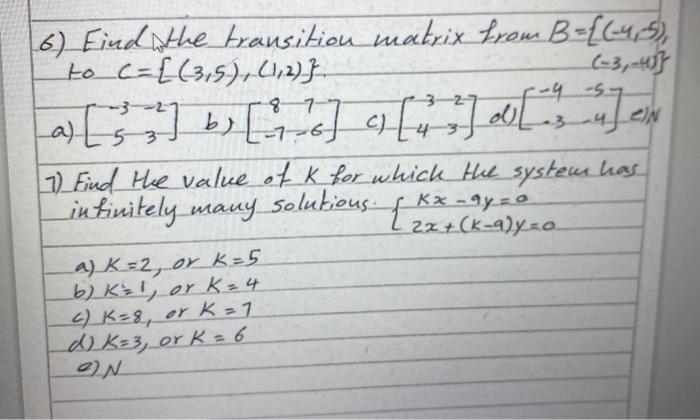 6) Find the transition matrix from B={(-4,-5),
(-3,-4)}
to C={(3,5), (1,2)}.
a) [-3 -2 b) [8 7 c) [3 -2 d) [-4 -5 e) N
5 3] -7 -6] 4 -3] -3 -4]
7) Find the value of K for which the system has
infinitely many solutions. { Kx - 9y = 0
2x + (K-9)y = 0
a) K = 2, or K = 5
b) K = 1, or K = 4
c) K = 8, or K = 7
d) K = 3, or K = 6
e) N